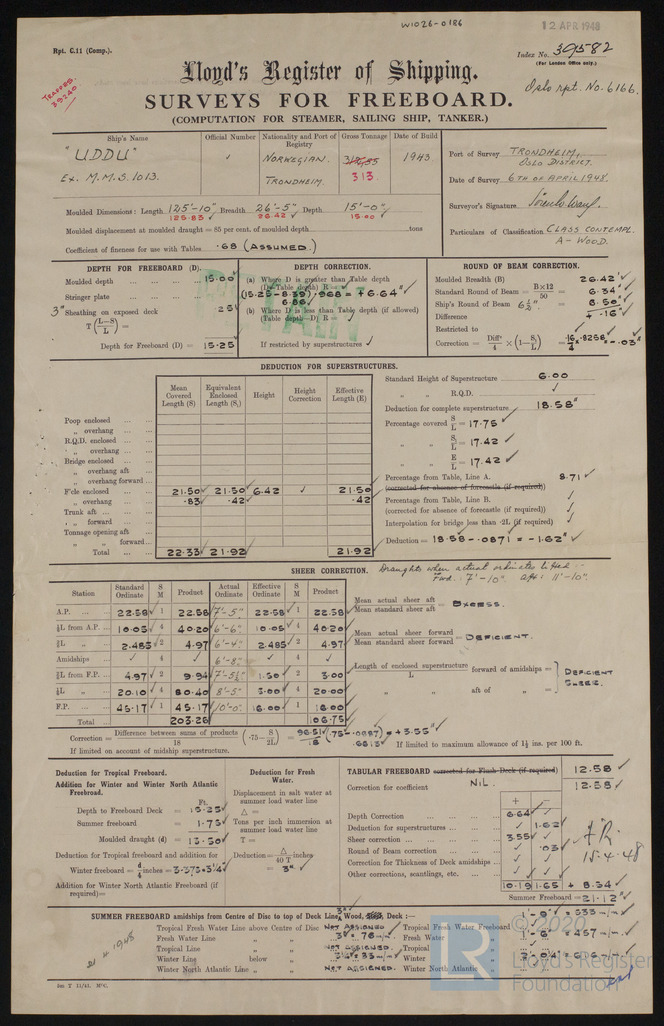 W1026-0186
12 APR 1948
Rpt. C.11 (Comp.).
Index No. 39582
(For London Office only.)
Lloyd's Register of Shipping.
Oslo rpt. No. 6166.
SURVEYS FOR FREEBOARD.
(COMPUTATION FOR STEAMER, SAILING SHIP, TANKER.)
Ship's Name Official Number Nationality and Port of Registry Gross Tonnage Date of Build
"UDDU" NORWEGIAN. 1943
Ex. M.M.S. 1013. TRONDHEIM 313
Port of Survey TRONDHEIM, OSLO DISTRICT.
Date of Survey 6TH OF APRIL 1948.
Surveyor's Signature
Particulars of Classification CLASS CONTEMPL. A-WOOD.
Moulded Dimensions: Length 125'-10" Breadth 26'-5" Depth 15'-0"
125.83 26.42 15.00
Moulded displacement at moulded draught = 85 per cent. of moulded depth tons
Coefficient of fineness for use with Tables .68 (ASSUMED.)
DEPTH FOR FREEBOARD (D).
Moulded depth 15.00
Stringer plate
3" Sheathing on exposed deck .25
T (L-S)/L =
Depth for Freeboard (D) = 15.25
DEPTH CORRECTION.
(a) Where D is greater than Table depth
(D-Table depth) R =
(15.25-8.39).968 = +6.64"
6.86
(b) Where D is less than Table depth (if allowed)
(Table depth-D) R =
If restricted by superstructures
ROUND OF BEAM CORRECTION.
Moulded Breadth (B) 26.42
Standard Round of Beam = B×12/50 = 6.34
Ship's Round of Beam 6½" = 6.50
Difference +.16
Restricted to
Correction = Diff/4 × (1-S₁/L) = .16/4 × .8258 = -.03"
DEDUCTION FOR SUPERSTRUCTURES.
Mean Covered Length (S) Equivalent Enclosed Length (S₁) Height Height Correction Effective Length (E)
Poop enclosed
„ overhang
R.Q.D. enclosed
„ overhang
Bridge enclosed
„ overhang aft
„ overhang forward
F'cle enclosed 21.50 21.50 6.42 21.50
„ overhang .83 .42 .42
Trunk aft
„ forward
Tonnage opening aft
„ „ forward
Total 22.33 21.92 21.92
Standard Height of Superstructure 6.00
„ „ R.Q.D.
Deduction for complete superstructure 18.58"
Percentage covered S/L = 17.75
„ „ S₁/L = 17.42
„ „ E/L = 17.42
Percentage from Table, Line A. 8.71
(corrected for absence of forecastle (if required))
Percentage from Table, Line B.
(corrected for absence of forecastle (if required))
Interpolation for bridge less than .2L (if required)
Deduction = 18.58 × .0871 = -1.62"
SHEER CORRECTION.
Draughts when actual ordinates lifted :-
Fwd: 7'-10" Aft: 11'-10"
Station Standard Ordinate S M Product Actual Ordinate Effective Ordinate S M Product
A.P. 22.58 1 22.58 7'-5" 22.58 1 22.58
⅙L from A.P. 10.05 4 40.20 6'-6" 10.05 4 40.20
⅓L „ 2.485 2 4.97 6'-4" 2.485 2 4.97
Amidships 4 6'-8" 4
⅓L from F.P. 4.97 2 9.94 7'-5½" 1.50 2 3.00
⅙L „ 20.10 4 80.40 8'-5" 5.00 4 20.00
F.P. 45.17 1 45.17 10'-0" 16.00 1 16.00
Total 203.26 106.75
Mean actual sheer aft / Mean standard sheer aft = EXCESS.
Mean actual sheer forward / Mean standard sheer forward = DEFICIENT.
Length of enclosed superstructure / L forward of amidships =
„ „ aft of „ =
DEFICIENT SHEER.
Correction = Difference between sums of products / 18 (.75 - S/2L) = 96.51/18 (.75-.0887) = +3.55"
.6613
If limited on account of midship superstructure.
If limited to maximum allowance of 1½ ins. per 100 ft.
Deduction for Tropical Freeboard.
Addition for Winter and Winter North Atlantic Freeboard.
Ft.
Depth to Freeboard Deck = 15.25
Summer freeboard = 1.75
Moulded draught (d) = 13.50
Deduction for Tropical freeboard and addition for
Winter freeboard = d/4 inches = 3.375 = 3¼"
Addition for Winter North Atlantic Freeboard (if required) =
Deduction for Fresh Water.
Displacement in salt water at summer load water line
Δ =
Tons per inch immersion at summer load water line
T =
Deduction = Δ/40 T inches
= 3"
TABULAR FREEBOARD corrected for Flush Deck (if required) 12.58
Correction for coefficient NIL. 12.58
+ -
Depth Correction 6.64
Deduction for superstructures 1.62
Sheer correction 3.55
Round of Beam correction .03
Correction for Thickness of Deck amidships
Other corrections, scantlings, etc.
10.19 1.65 + 8.54
Summer Freeboard = 21.12"
15.4.48
SUMMER FREEBOARD amidships from Centre of Disc to top of Deck Line, Wood, Deck :— 1'-9" = 533 m/m
Tropical Fresh Water Line above Centre of Disc NOT ASSIGNED. Tropical Fresh Water Freeboard
Fresh Water Line „ „ 3" = 76 m/m Fresh Water „ 1'-6" = 457 m/m
Tropical Line „ „ NOT ASSIGNED. Tropical „
Winter Line below „ Winter „
Winter North Atlantic Line „ „ NOT ASSIGNED. Winter North Atlantic „
1948
5m. T 11/41. MºC.
© 2020
LR
Lloyd's Register
Foundation